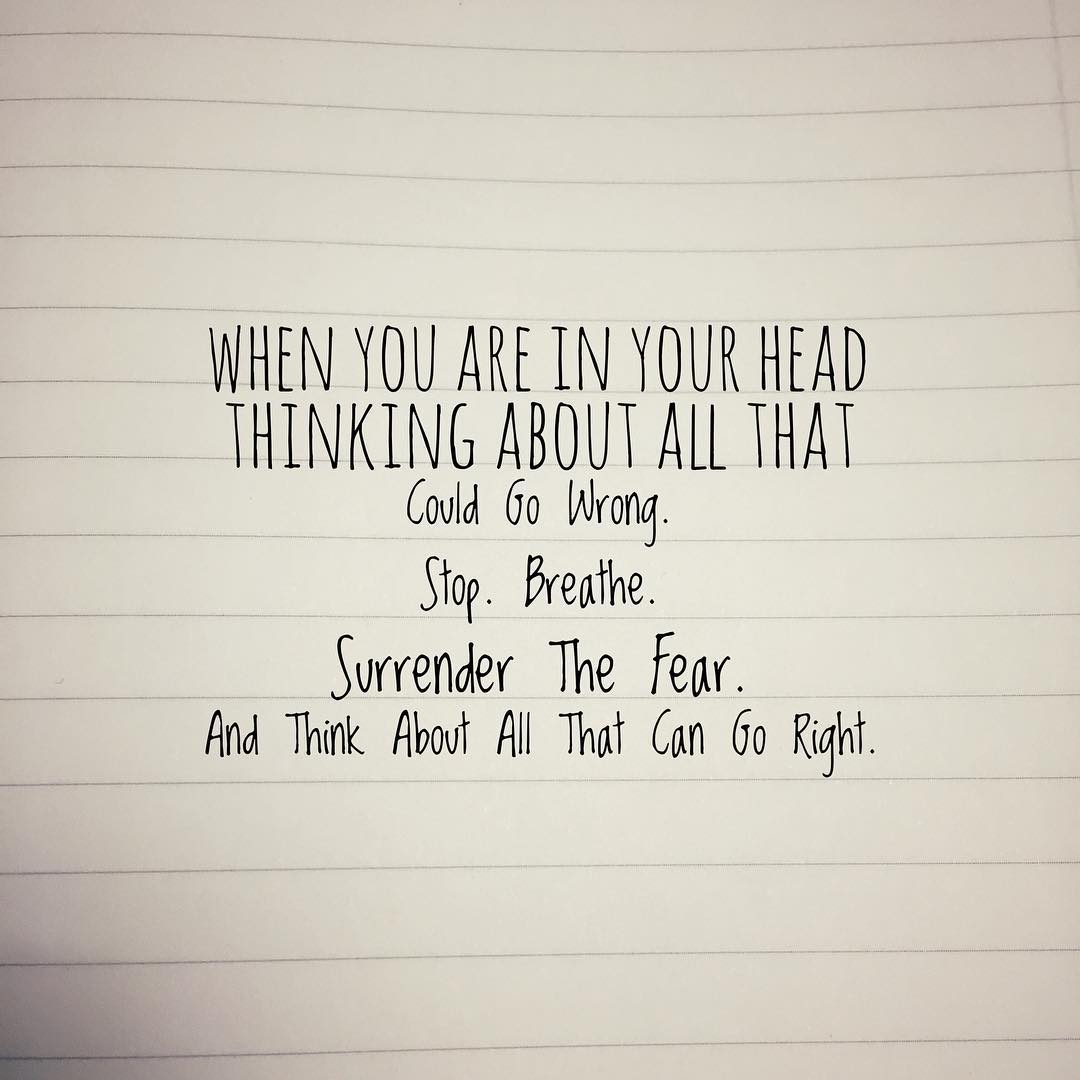 WHEN YOU ARE IN YOUR HEAD
THINKING ABOUT ALL THAT
Could Go Wrong.
Stop. Breathe.
Surrender The Fear.
And Think About All That Can Go Right.